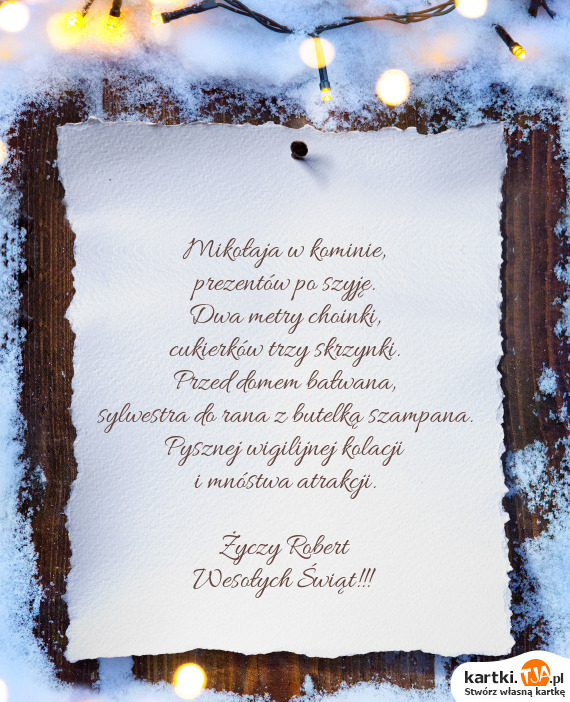 Mikołaja w kominie,
prezentów po szyję.
Dwa metry choinki,
cukierków trzy skrzynki.
Przed domem bałwana,
sylwestra do rana z butelką szampana.
Pysznej wigilijnej kolacji
i mnóstwa atrakcji.
Życzy Robert
Wesołych Świąt!!!
kartki.TJA.pl
Stwórz własną kartkę